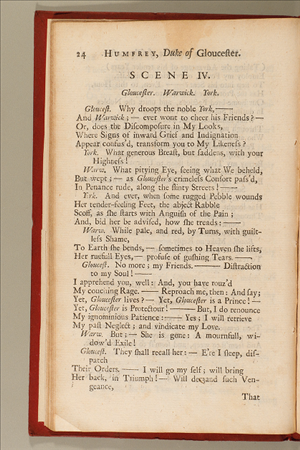 24 HUMFREY, Duke of Gloucester.
SCENE IV.
Gloucester. Warwick. York.
Glocest. Why droops the noble York,——
And Warwick; — ever wont to cheer his Friends? —
Or, does the Discomposure in My Looks,
Where Signs of inward Grief and Indignation
Appear confus'd, transform you to My Likeness?
York. What generous Breast, but saddens, with your
Highness!
Warw. What pitying Eye, seeing what We beheld,
But wept; — as Glocester's crimeless Consort pass'd,
In Penance rude, along the flinty Streets! ——
York. And ever, when some rugged Pebble wounds
Her tender-feeling Feet, the abject Rabble
Scoff, as she starts with Anguish of the Pain;
And, bid her be advised, how she treads: ——
Warw. While pale, and red, by Turns, with guilt-
less Shame,
To Earth she bends, — sometimes to Heaven she lifts,
Her ruefull Eyes, — profuse of gushing Tears. ——
Glocest. No more; my Friends. —— Distraction
to my Soul! ——
I apprehend you, well: And, you have rouz'd
My couching Rage. —— Reproach me, then: And say;
Yet, Glocester lives? — Yet, Glocester is a Prince! —
Yet, Glocester is Protectour! —— But, I do renounce
My ignominious Patience: —— Yes; I will retrieve
My past Neglect; and vindicate my Love.
Warw. But: — She is gone: A mournfull, wi-
dow'd Exile!
Glocest. They shall recall her: — E're I sleep, dis-
patch
Their Orders. —— I will go my self; will bring
Her back, in Triumph! — Will demand such Ven-
geance,
That